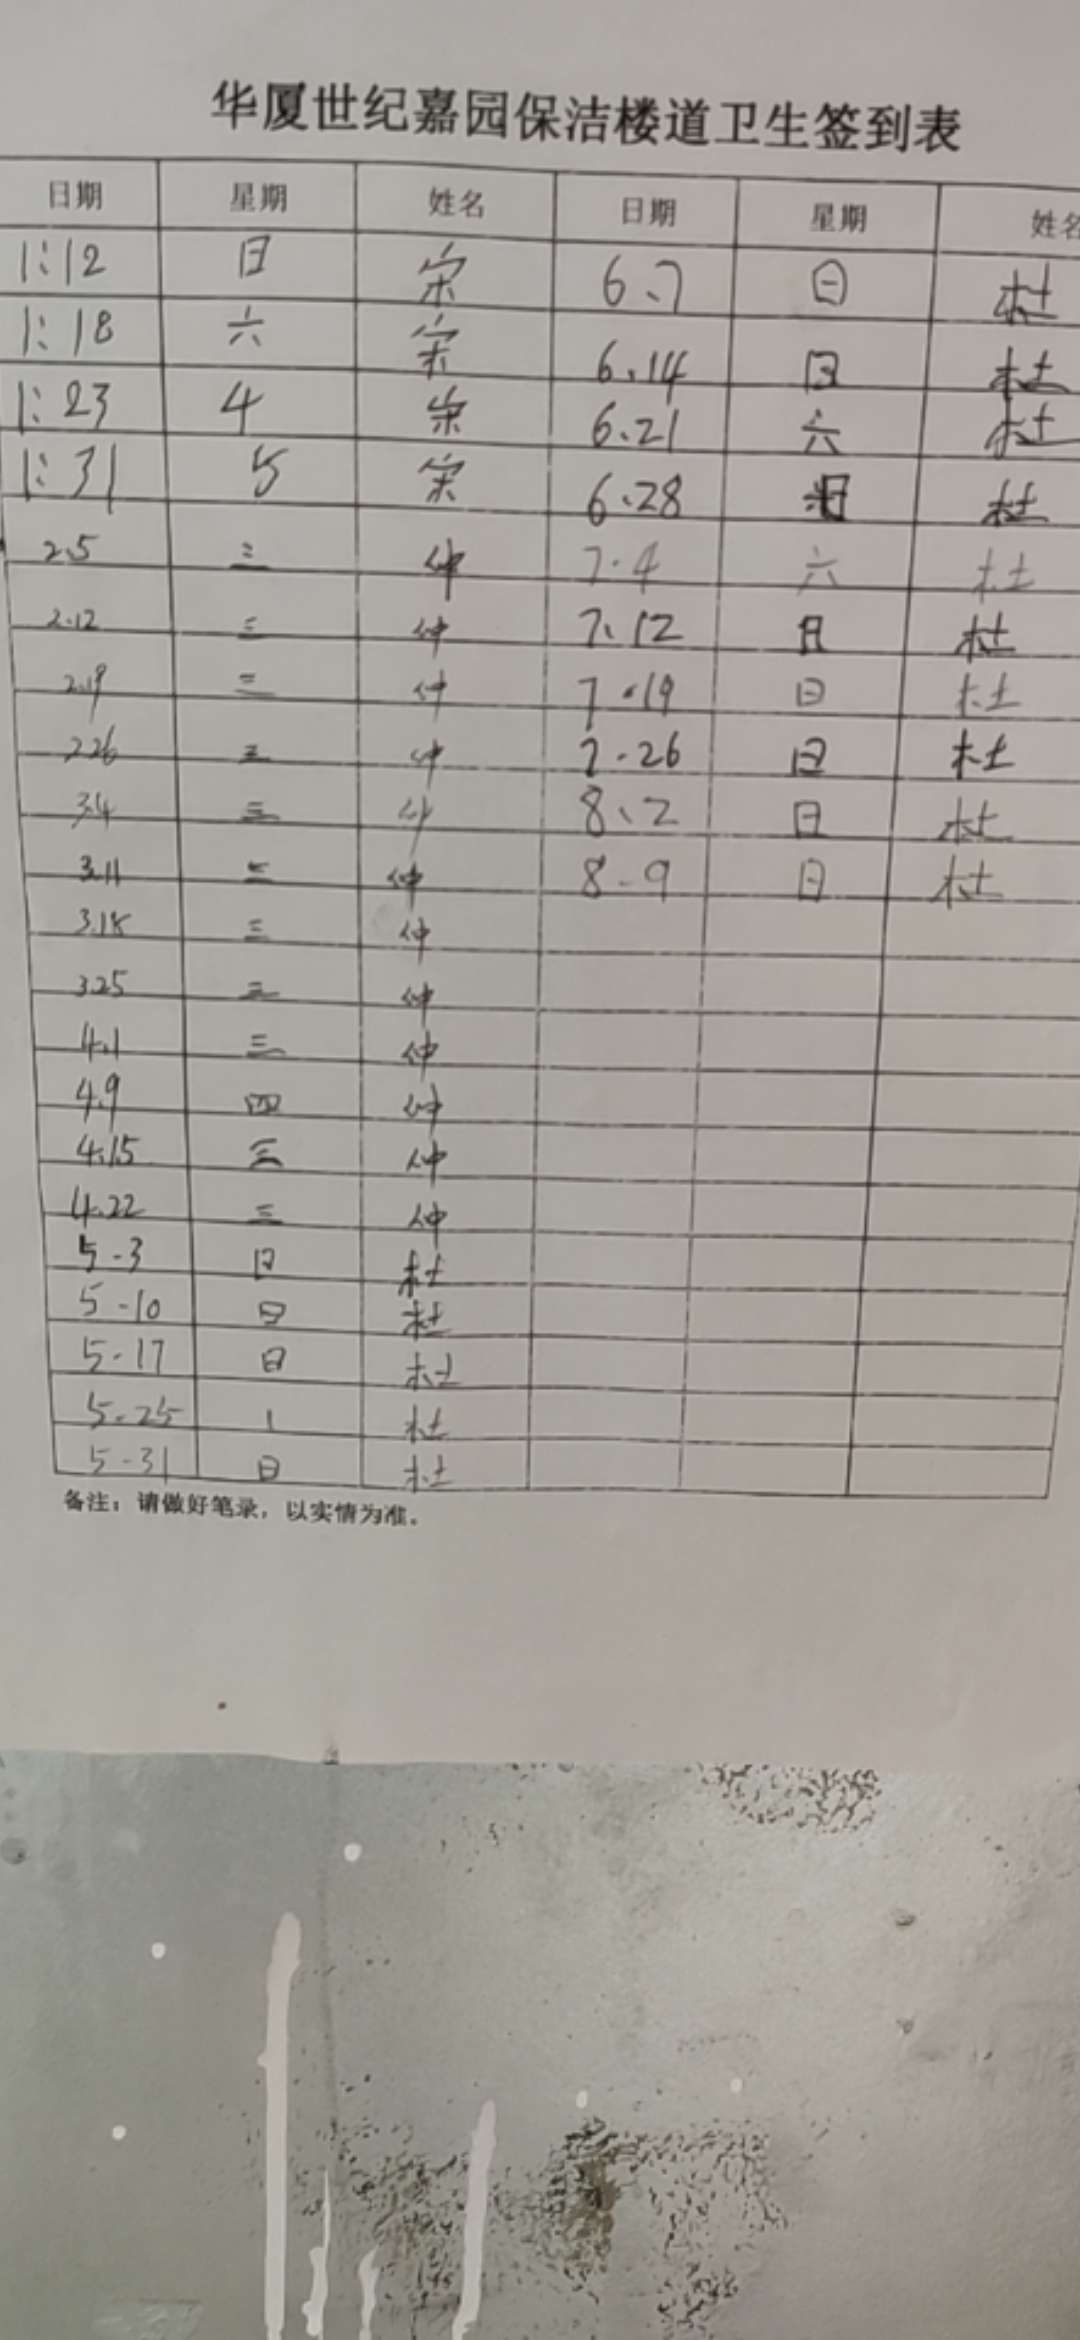 华厦世纪嘉园保洁楼道卫生签到表
日期 星期 姓名 日期 星期 姓名
1:12 日 宋 6.7 日 杜
1:18 六 宋 6.14 日 杜
1:23 4 宋 6.21 六 杜
1:31 5 宋 6.28 日 杜
2.5 三 仲 7.4 六 杜
2.12 三 仲 7.12 日 杜
2.19 三 仲 7.19 日 杜
2.26 三 仲 7.26 日 杜
3.4 三 仲 8.2 日 杜
3.11 三 仲 8-9 日 杜
3.18 三 仲
3.25 三 仲
4.1 三 仲
4.9 四 仲
4.15 三 仲
4.22 三 仲
5-3 日 杜
5-10 日 杜
5-17 日 杜
5-25 1 杜
5-31 日 杜
备注：请做好笔录，以实情为准。